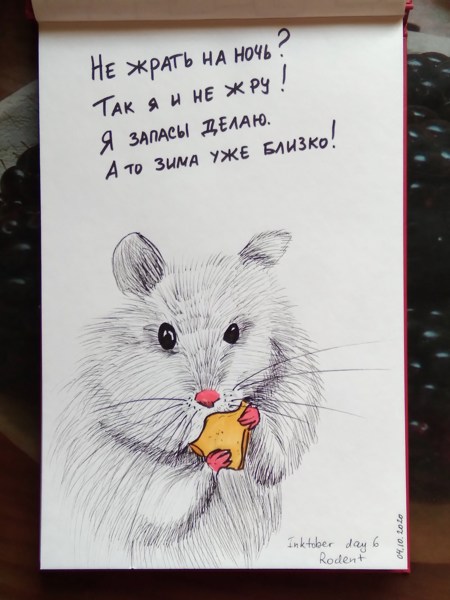 Не жрать на ночь?
Так я и не жру!
Я запасы делаю.
А то зима уже близко!
Inktober day 6
Rodent
04.10.2020